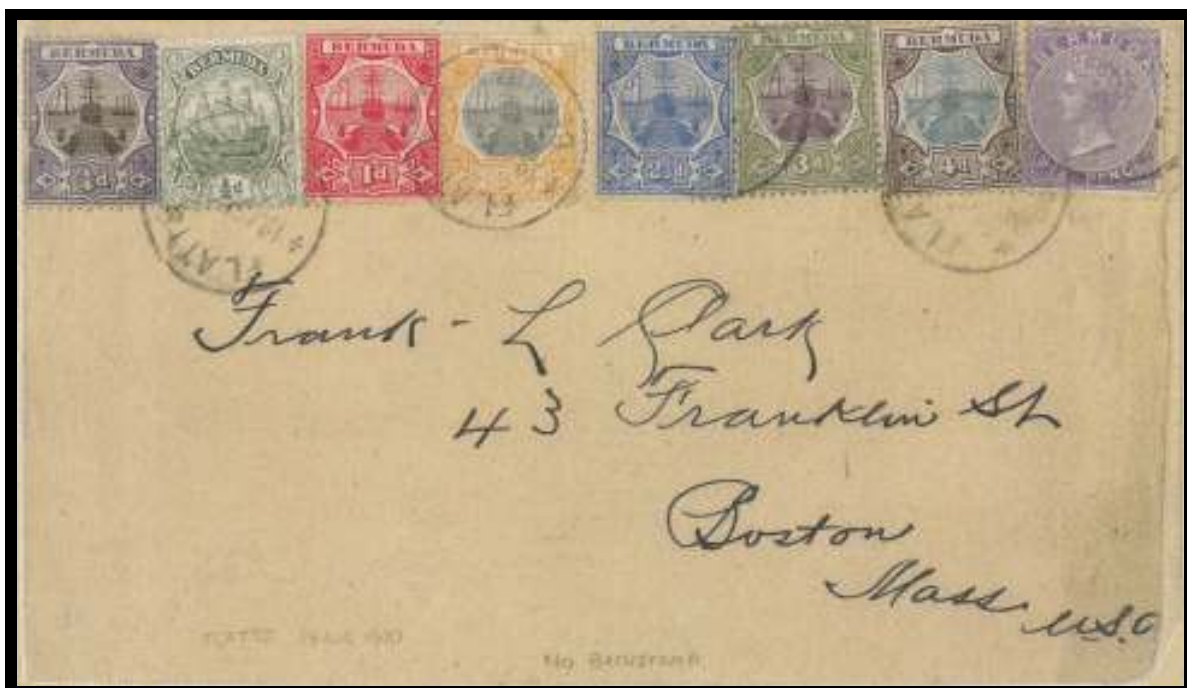 BERMUDA BERMUDA BERMUDA BERMUDA BERMUDA BERMUDA BERMUDA
½d 1d 2½d 3d 4d
FLATTS
Frank - L Park
43 Franklin St
Boston
Mass
U.S.A
NO BACKSTAMP